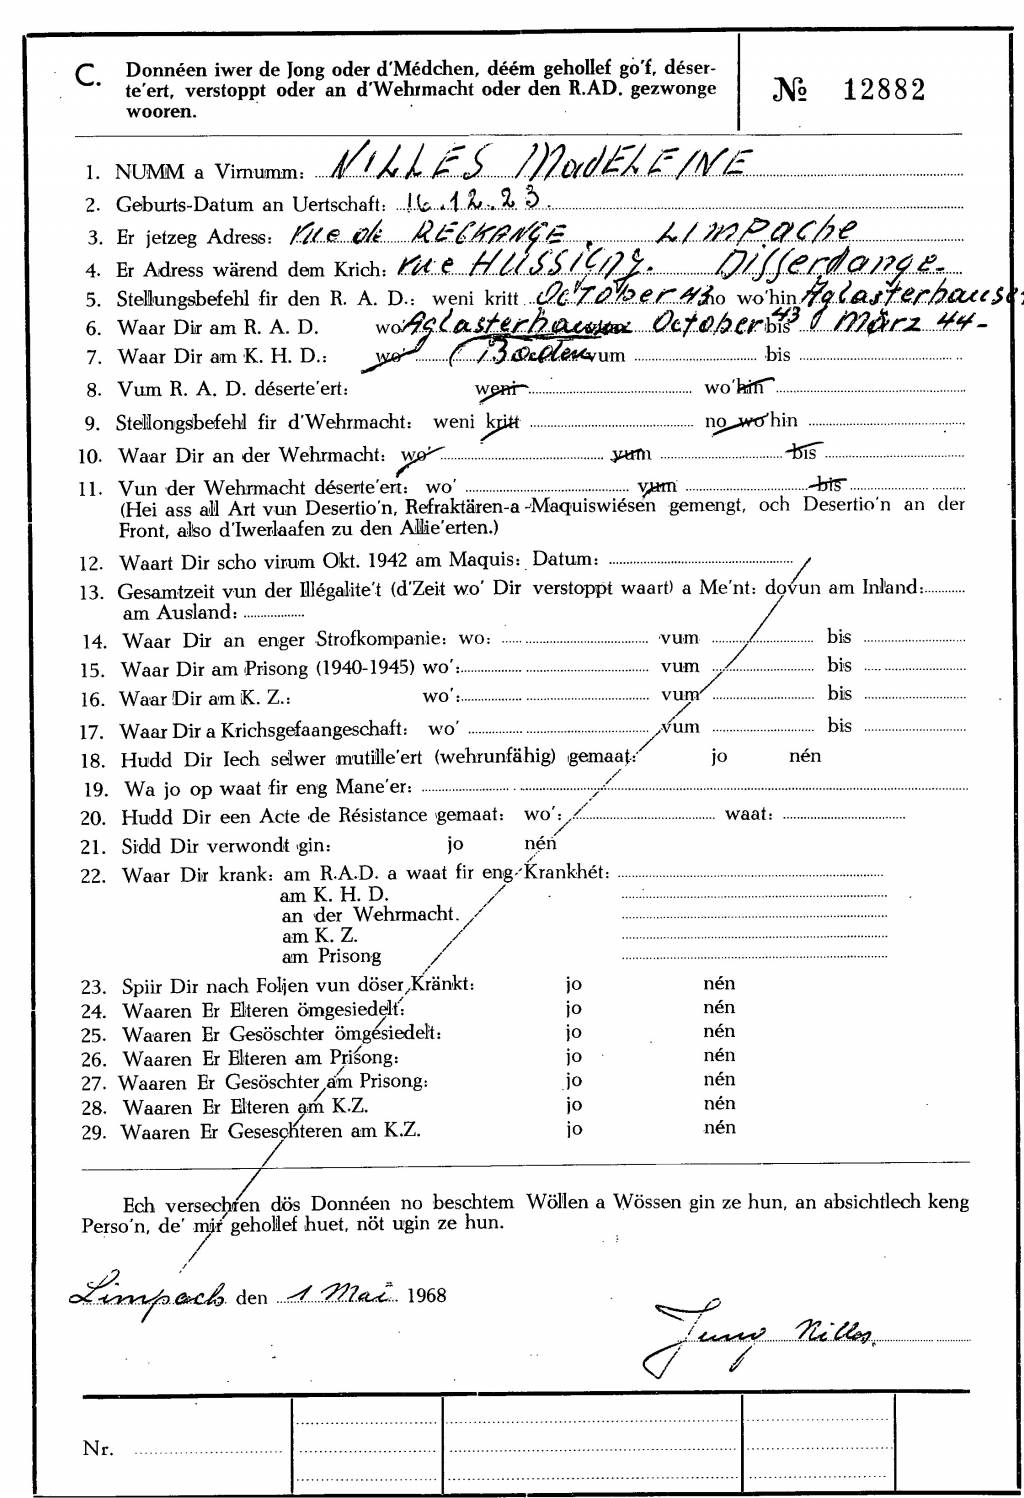 C. Donnéen iwer de Jong oder d'Médchen, déém gehollef go'f, déser-
te'ert, verstoppt oder an d'Wehrmacht oder den R.AD. gezwonge
wooren.
№ 12882
1. NUMM a Virnumm: NILLES MadELEINE
2. Geburts-Datum an Uertschaft: 16.12.23.
3. Er jetzeg Adress: rue de RECKANGE, LIMPache
4. Er Adress wärend dem Krich: rue HUSSIGNY. Differdange.
5. Stellungsbefehl fir den R. A. D.: weni kritt October 43 no wo'hin Aglasterhausen
6. Waar Dir am R. A. D. wo' Aglasterhausen October 43 bis März 44-
7. Waar Dir am K. H. D.: wo' (Boden vum bis
8. Vum R. A. D. déserte'ert: weni wo'hin
9. Stellongsbefehl fir d'Wehrmacht: weni kritt no wo'hin
10. Waar Dir an der Wehrmacht: wo' vum bis
11. Vun der Wehrmacht déserte'ert: wo' vum bis
(Hei ass all Art vun Desertio'n, Refraktären-a-Maquiswiésen gemengt, och Desertio'n an der
Front, also d'Iwerlaafen zu den Allie'erten.)
12. Waart Dir scho virum Okt. 1942 am Maquis: Datum:
13. Gesamtzeit vun der Illégalite't (d'Zeit wo' Dir verstoppt waart) a Me'nt: dovun am Inland:
am Ausland:
14. Waar Dir an enger Strofkompanie: wo: vum bis
15. Waar Dir am Prisong (1940-1945) wo': vum bis
16. Waar Dir am K. Z.: wo': vum bis
17. Waar Dir a Krichsgefaangeschaft: wo' vum bis
18. Hudd Dir Iech selwer mutille'ert (wehrunfähig) gemaat: jo nén
19. Wa jo op waat fir eng Mane'er:
20. Hudd Dir een Acte de Résistance gemaat: wo': waat:
21. Sidd Dir verwondt gin: jo nén
22. Waar Dir krank: am R.A.D. a waat fir eng Krankhét:
am K. H. D.
an der Wehrmacht.
am K. Z.
am Prisong
23. Spiir Dir nach Foljen vun döser Kränkt: jo nén
24. Waaren Er Elteren ömgesiedelt: jo nén
25. Waaren Er Gesöschter ömgesiedelt: jo nén
26. Waaren Er Elteren am Prisong: jo nén
27. Waaren Er Gesöschter am Prisong: jo nén
28. Waaren Er Elteren am K.Z. jo nén
29. Waaren Er Geseschteren am K.Z. jo nén
Ech versechren dös Donnéen no beschtem Wöllen a Wössen gin ze hun, an absichtlech keng
Perso'n, de' mir gehollef huet, nöt ugin ze hun.
Limpach den 1 Mai 1968
Jung Nilles.
Nr.